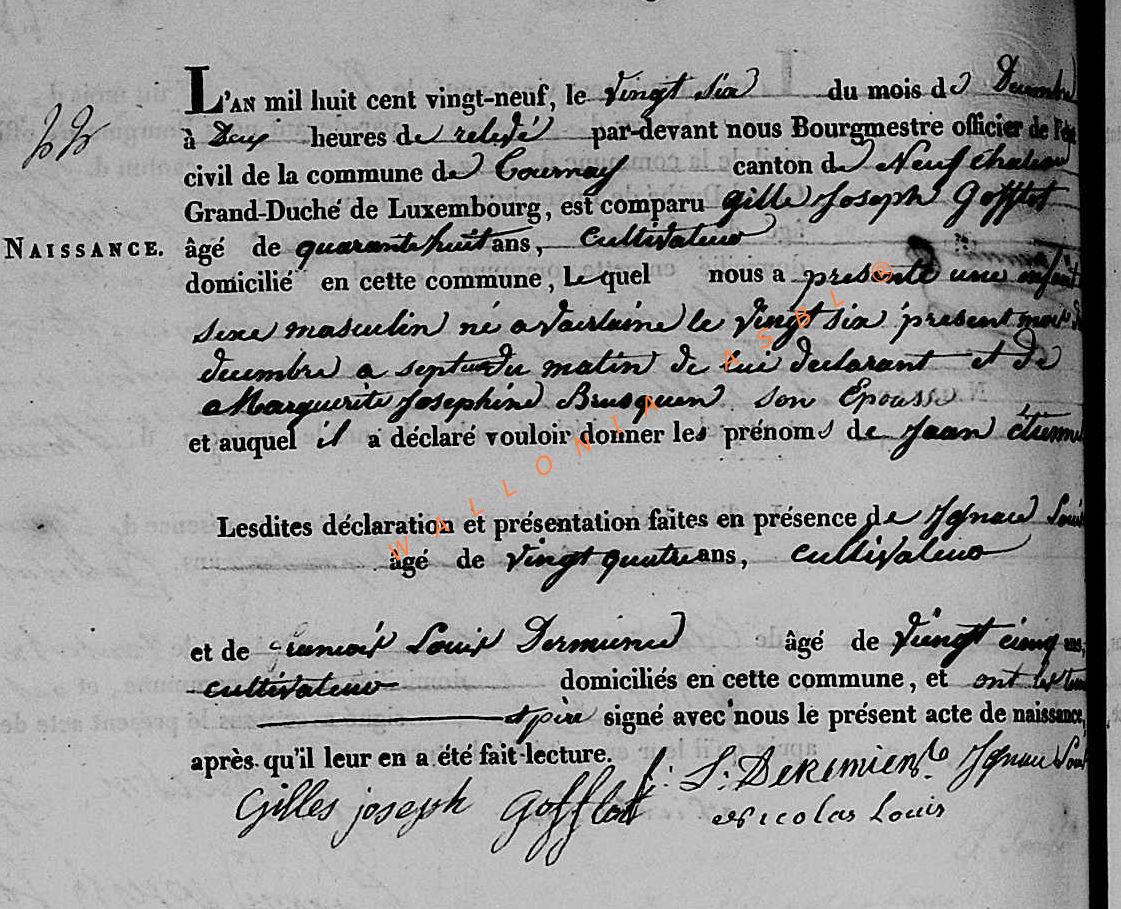 L'AN mil huit cent vingt-neuf, le vingt six du mois de Decembre
à Deux heures de relevé par-devant nous Bourgmestre officier de l'ét
22
civil de la commune de Tournay canton de Neufchateau
Grand-Duché de Luxembourg, est comparu Gille Joseph Gofflot
NAISSANCE. âgé de quarante huit ans, Cultivateur
domicilié en cette commune, Lequel nous a presenté une enfant
sexe masculin né a Verlaine le vingt six présent mois de
decembre a sept du matin de lui declarant et de
Marguerite Josephine Brusquen son Epousse
et auquel il a déclaré vouloir donner les prénoms de Jean étienne
Lesdites déclaration et présentation faites en présence de Ignace Louis
âgé de vingt quatre ans, cultivateur
et de Louis Dermience âgé de vingt cinq ans
cultivateur domiciliés en cette commune, et ont les
et père signé avec nous le présent acte de naissance,
après qu'il leur en a été fait lecture.
Ignace Loui
Gilles joseph Gofflot Nicolas Louis
WALLONIA ASBL ©